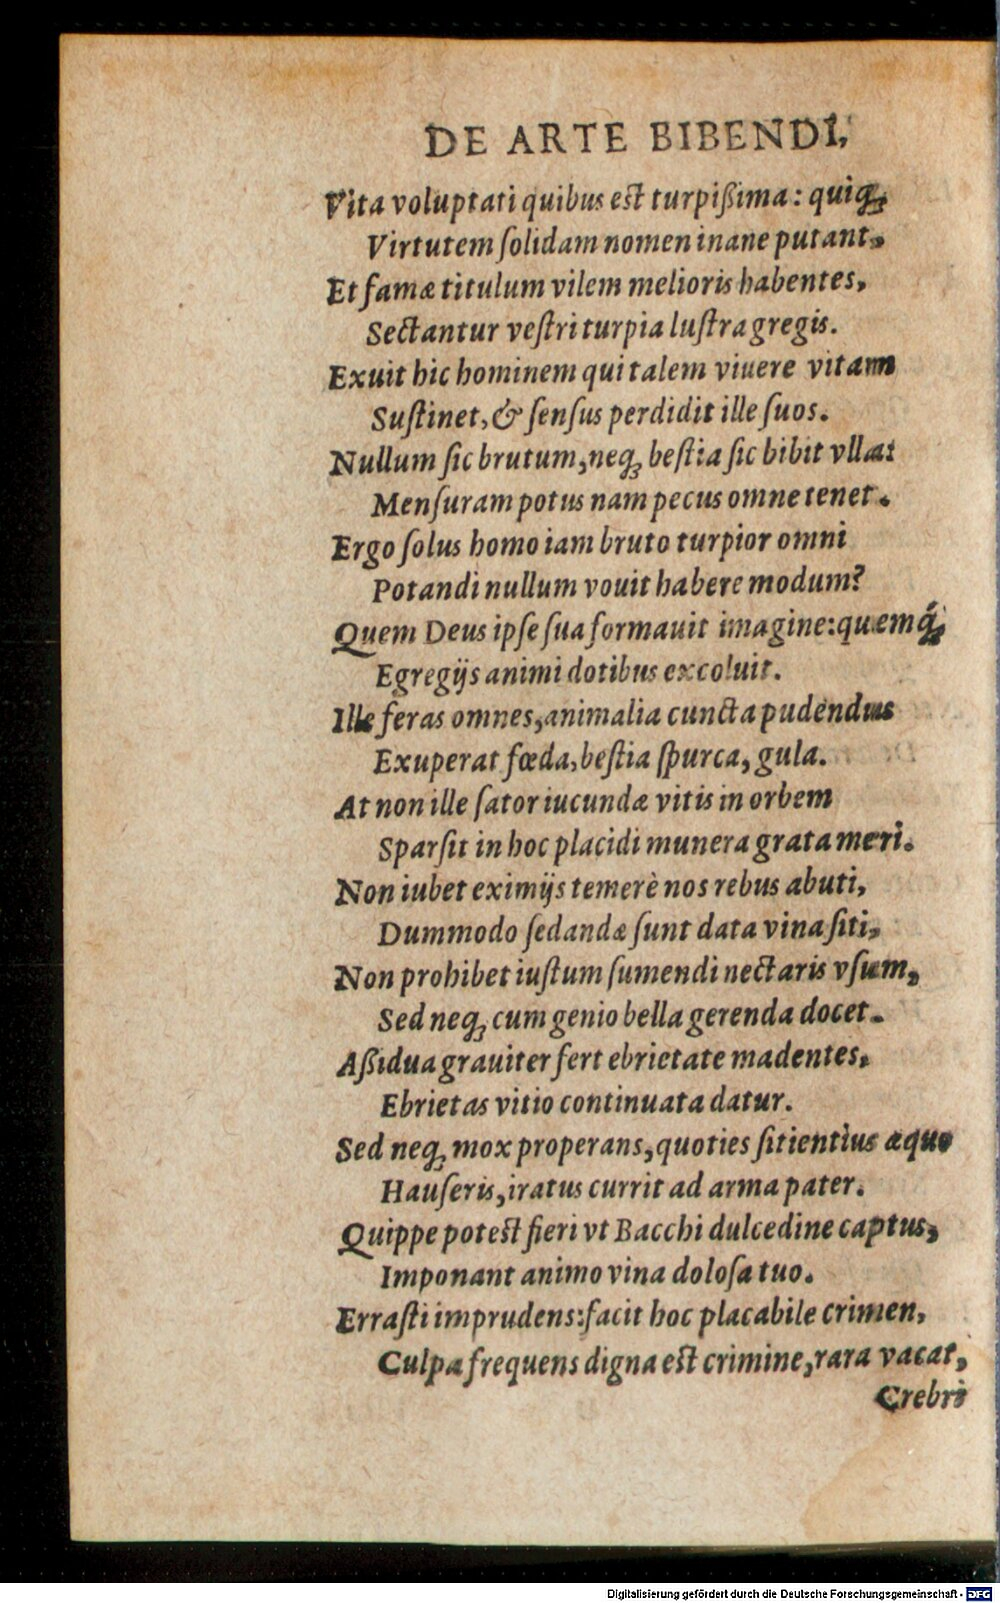 DE ARTE BIBENDI,
Vita voluptati quibus est turpißima: quiq́;
Virtutem ſolidam nomen inane putant,
Et famæ titulum vilem melioris habentes,
Sectantur veſtri turpia luſtra gregis.
Exuit hic hominem qui talem viuere vitam
Suſtinet, & ſenſus perdidit ille ſuos.
Nullum ſic brutum, neq; beſtia ſic bibit vlla:
Menſuram potus nam pecus omne tenet.
Ergo ſolus homo iam bruto turpior omni
Potandi nullum vouit habere modum?
Quem Deus ipſe ſua formauit imagine: quemq́;
Egregijs animi dotibus excoluit.
Ille feras omnes, animalia cuncta pudendus
Exuperat fœda, beſtia ſpurca, gula.
At non ille ſator iucundæ vitis in orbem
Sparſit in hoc placidi munera grata meri.
Non iubet eximijs temerè nos rebus abuti,
Dummodo ſedandæ ſunt data vina ſiti,
Non prohibet iuſtum ſumendi nectaris vſum,
Sed neq; cum genio bella gerenda docet.
Aßidua grauiter fert ebrietate madentes,
Ebrietas vitio continuata datur.
Sed neq; mox properans, quoties ſitientius æquo
Hauſeris, iratus currit ad arma pater.
Quippe potest fieri vt Bacchi dulcedine captus,
Imponant animo vina doloſa tuo.
Erraſti imprudens: facit hoc placabile crimen,
Culpa frequens digna est crimine, rara vacat,
Crebri
Digitalisierung gefördert durch die Deutsche Forschungsgemeinschaft - DFG